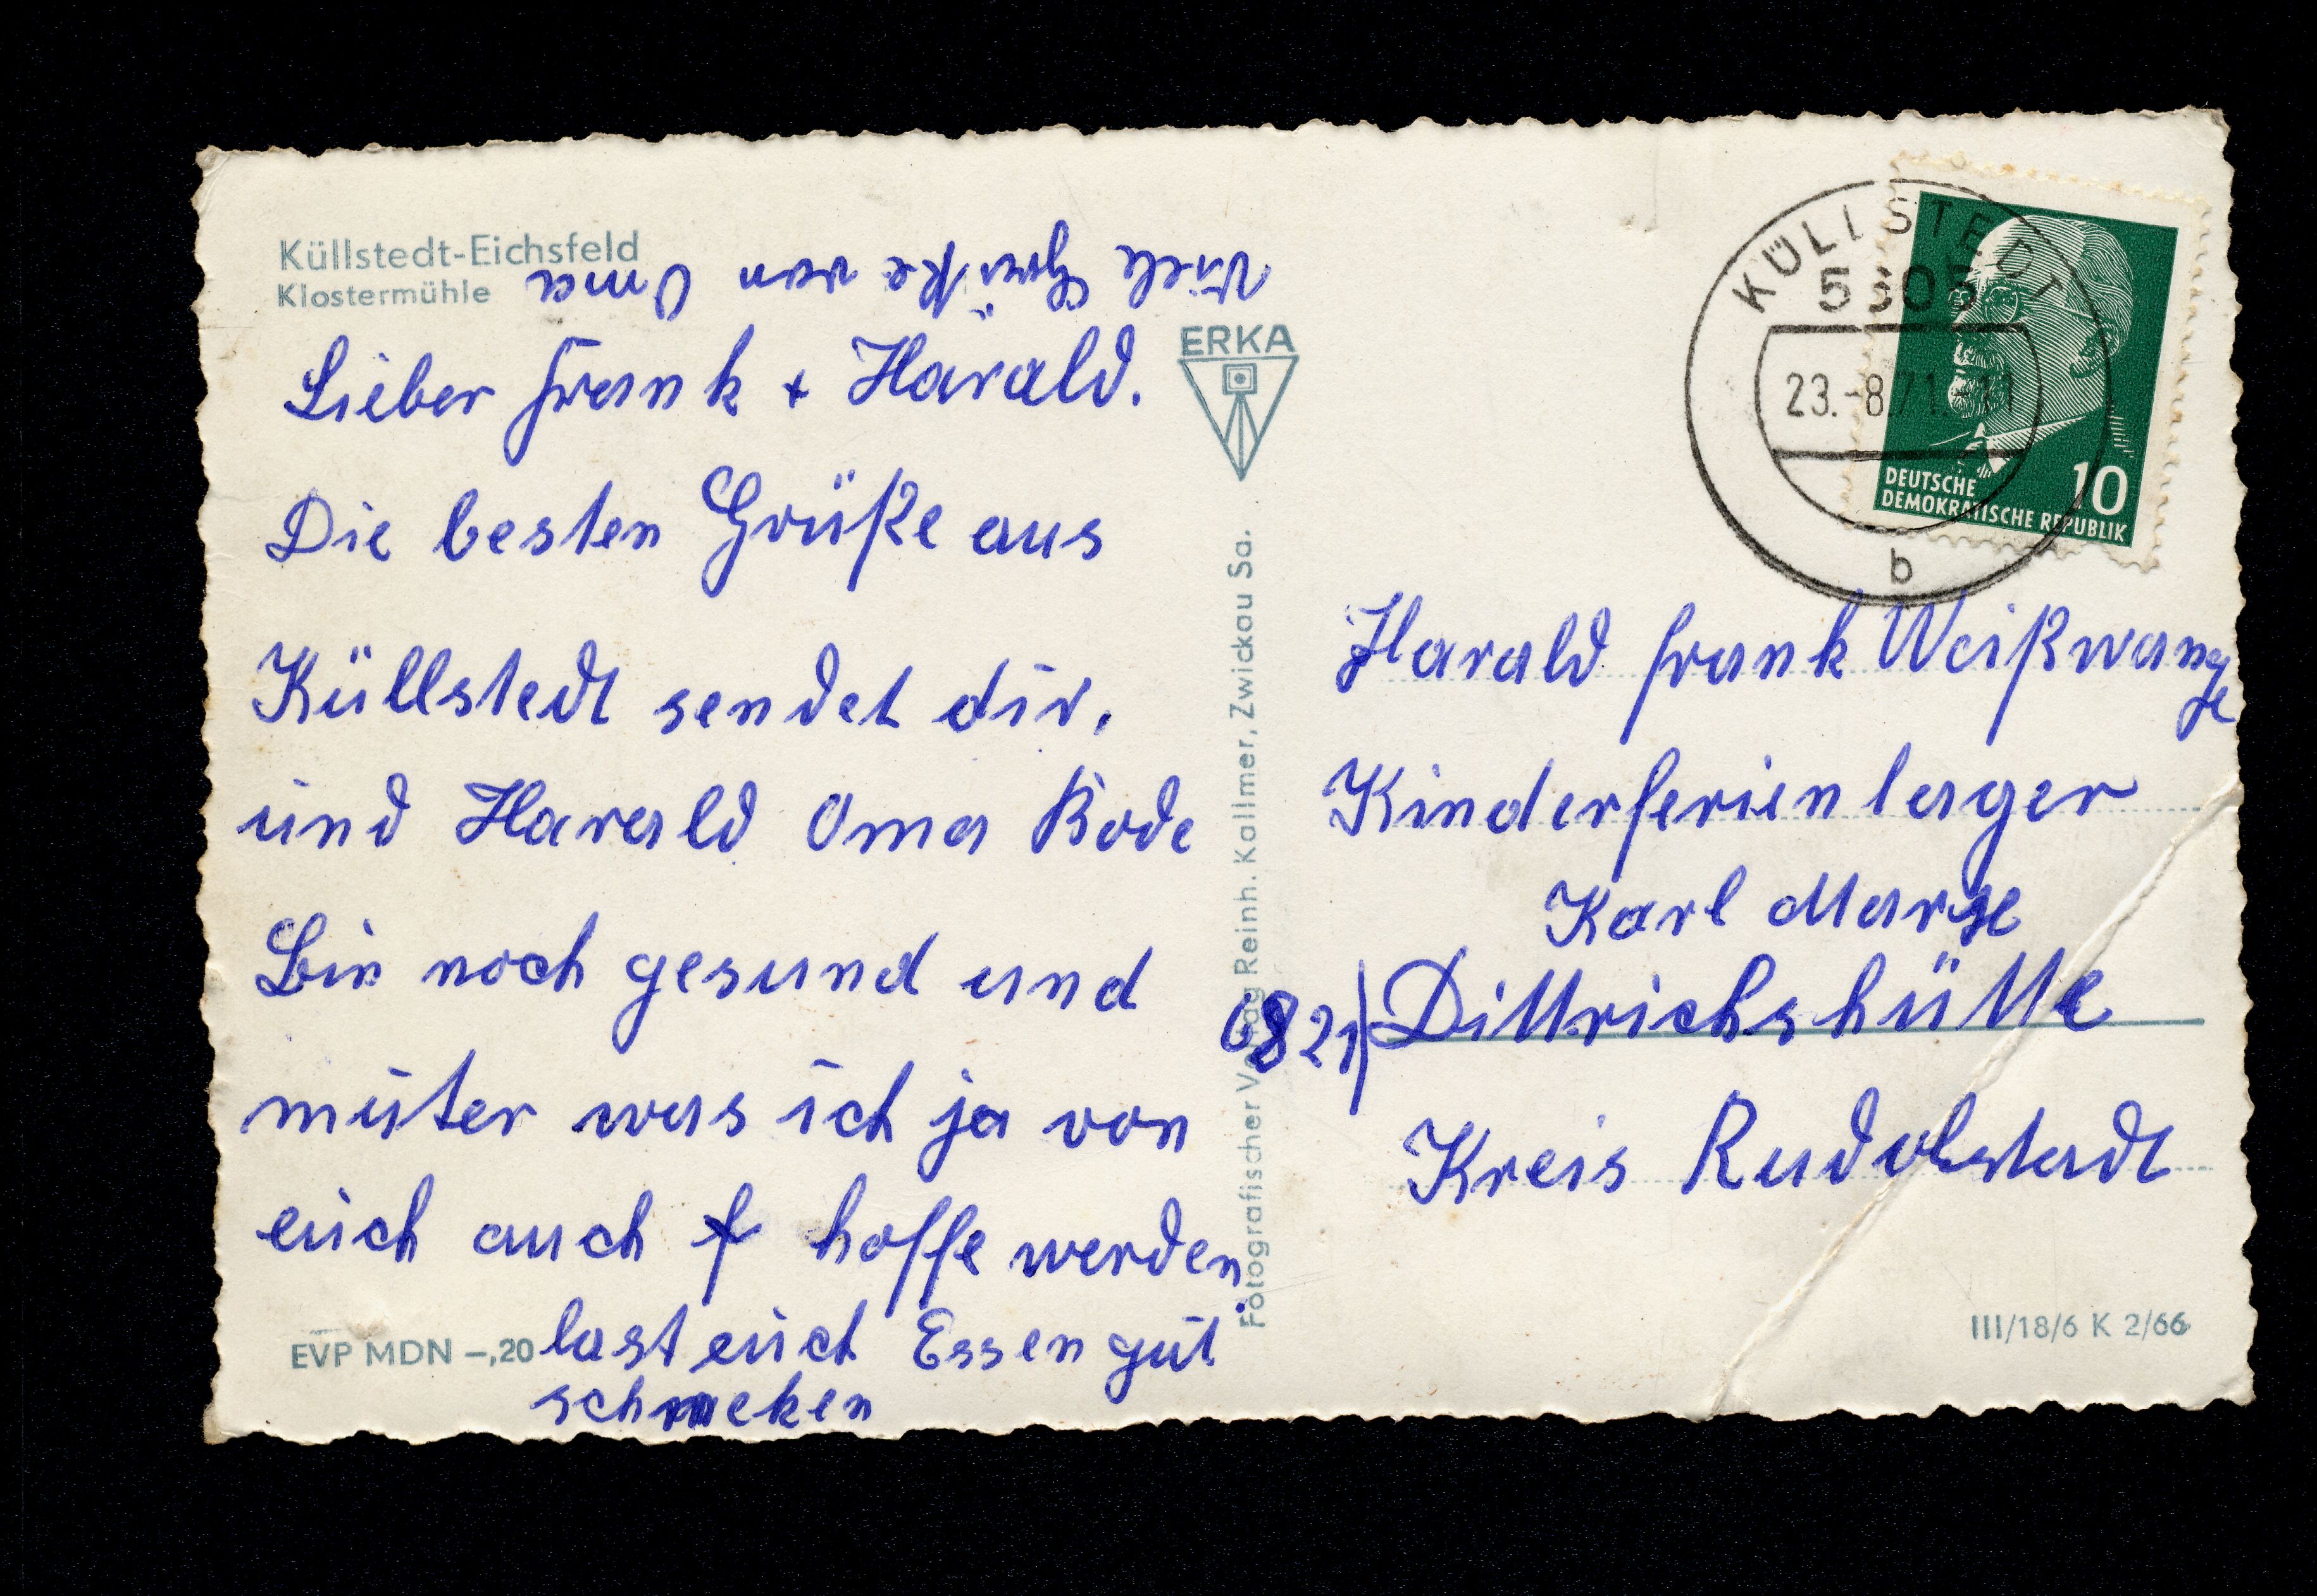 Küllstedt-Eichsfeld
Klostermühle
Viele Grüße von Oma
Lieber Frank + Härald.
Die besten Grüße aus
Küllstedt sendet dir.
und Harald Oma Bode
Bin noch gesund und
muter was ich ja von
euch auch f hoffe werden.
last euch Essen gut
schmeken
EVP MDN –,20
ERKA
Fotografischer Verlag Reinh. Kallmer, Zwickau Sa.
KÜLLSTEDT
5305
23.-8.71.-11
b
10
DEUTSCHE
DEMOKRATISCHE REPUBLIK
Harald Frank Weißwange
Kinderferienlager
Karl Marx
6821) Dittrichshütte
Kreis Rudolstadt
III/18/6 K 2/66